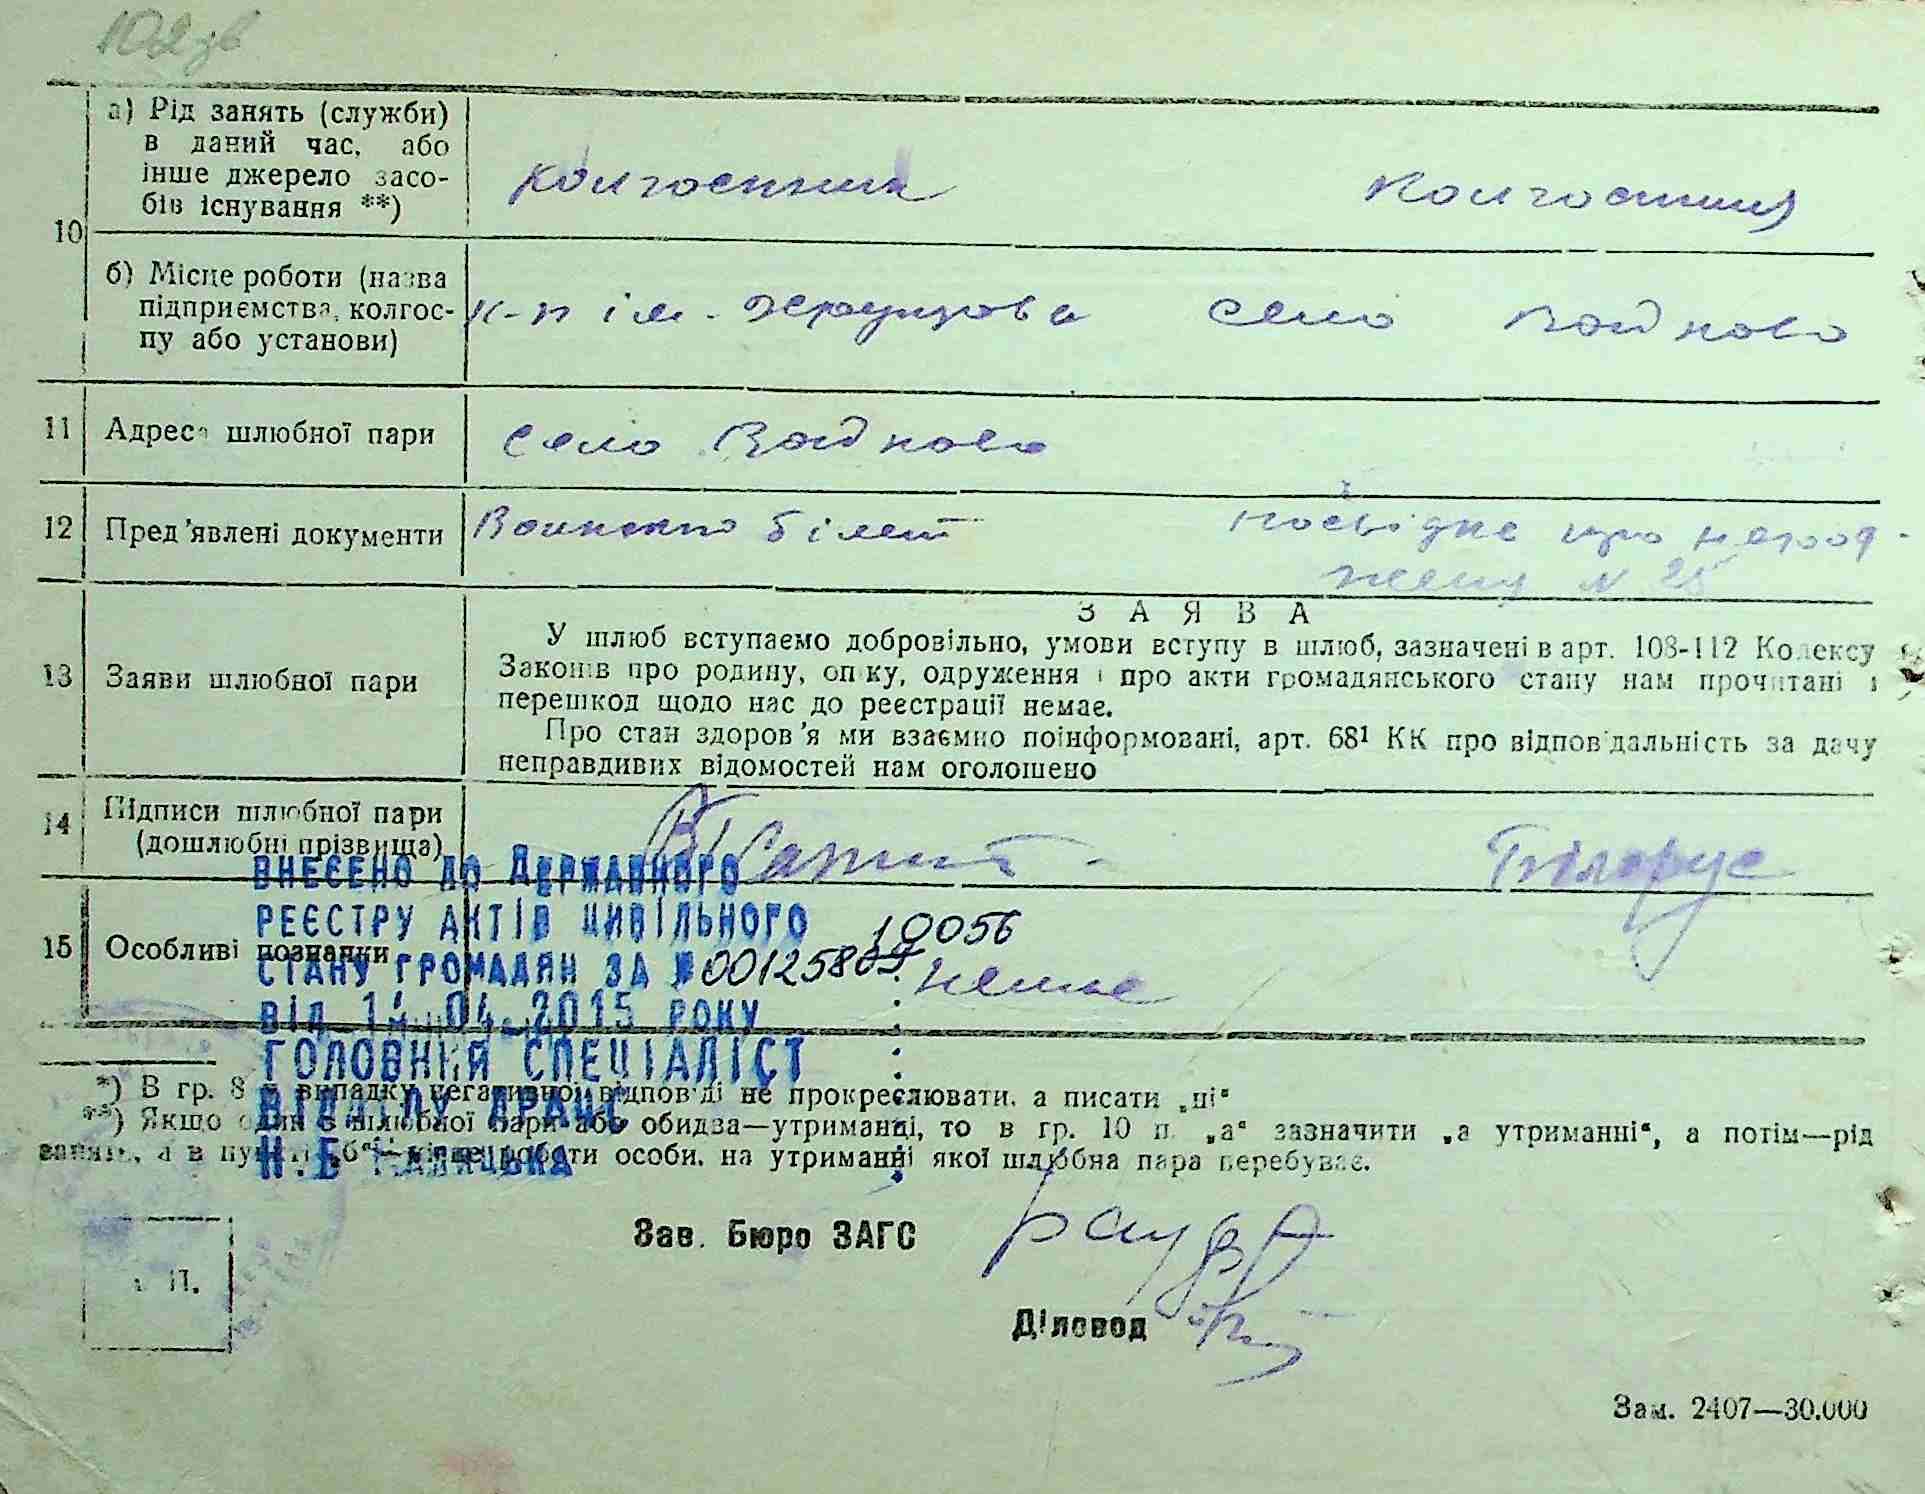 10
а) Рід занять (служби)
в даний час, або
інше джерело засо-
бів існування **)
колгоспник
колгоспниця
б) Місце роботи (назва
підприємства, колгос-
пу або установи)
к-п ім.
село
11
Адреса шлюбної пари
село
12
Пред'явлені документи
білет
посвідка про
N 25
13
Заяви шлюбної пари
ЗАЯВА
У шлюб вступаємо добровільно, умови вступу в шлюб, зазначені в арт. 108-112 Кодексу
Законів про родину, опіку, одруження і про акти громадянського стану нам прочитані і
перешкод щодо нас до реєстрації немає.
Про стан здоров'я ми взаємно поінформовані, арт. 68¹ КК про відповідальність за дачу
неправдивих відомостей нам оголошено
14
Підписи шлюбної пари
(дошлюбні прізвища)
Білорус
ВНЕСЕНО ДО ДЕРЖАВНОГО
РЕЄСТРУ АКТІВ ЦИВІЛЬНОГО
10056
15
Особливі познаки
СТАНУ ГРОМАДЯН ЗА №
немає
ВІД 14 04 2015 РОКУ
ГОЛОВНИЙ СПЕЦІАЛІСТ
ВІДДІЛУ ДРАЦС
*) В гр. 8 в випадку негативної відповіді не прокреслювати, а писати „ні“
**) Якщо один з шлюбної пари або обидва—утриманці, то в гр. 10 п. „а“ зазначити „а утриманні“, а потім—рід
занять, а в пункті „б“—місце роботи особи, на утриманні якої шлюбна пара перебуває.
Н.Б
Зав. Бюро ЗАГС
П.
Діловод
Зам. 2407—30.000